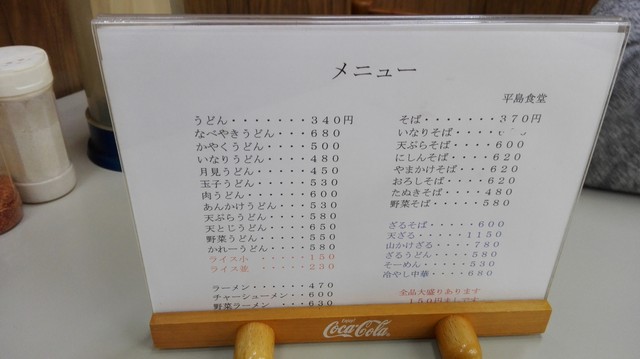 メニュー
平島食堂
うどん・・・・・・・340円
なべやきうどん・・・680
かやくうどん・・・・500
いなりうどん・・・・480
月見うどん・・・・・450
玉子うどん・・・・・530
肉うどん・・・・・・600
あんかけうどん・・・530
天ぷらうどん・・・・580
天とじうどん・・・・650
野菜うどん・・・・・550
かれーうどん・・・・580
ライス小・・・・・150
ライス並・・・・・230
ラーメン・・・・・470
チャーシューメン・・・600
野菜ラーメン・・・・630
そば・・・・・・・370円
いなりそば・・・・
天ぷらそば・・・・600
にしんそば・・・・620
やまかけそば・・・620
おろしそば・・・・620
たぬきそば・・・・480
野菜そば・・・・・580
ざるそば・・・・・600
天ざる・・・・・1150
山かけざる・・・・780
ざるうどん・・・・580
そーめん・・・・・530
冷やし中華・・・・680
全品大盛りあります
150円
Coca-Cola